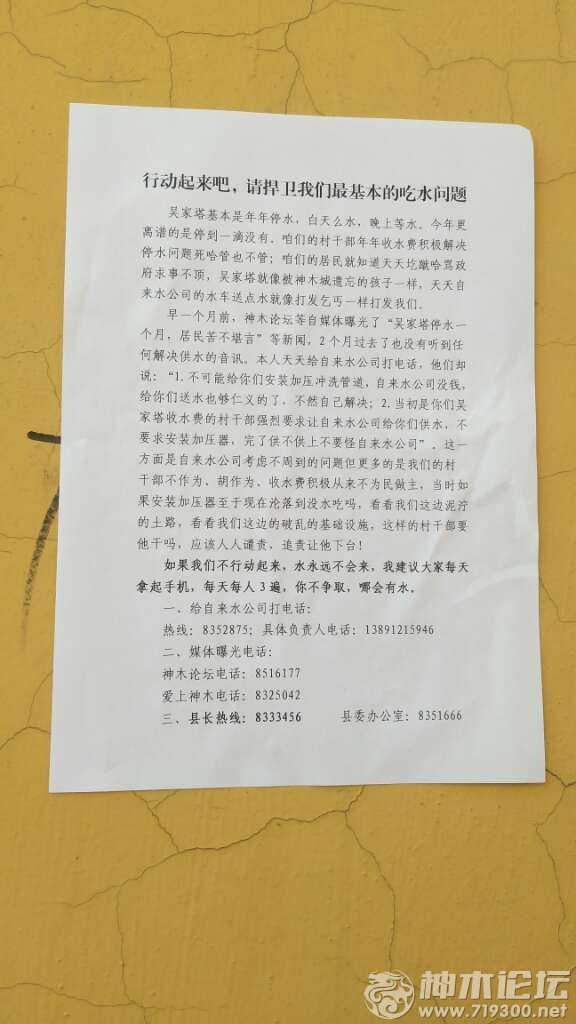 行动起来吧，请捍卫我们最基本的吃水问题
吴家塔基本是年年停水，白天么水，晚上等水。今年更
离谱的是停到一滴没有、咱们的村干部年年收水费积极解决
停水问题死哈管也不管；咱们的居民就知道天天圪蹴哈骂政
府求事不顶，吴家塔就像被神木城遗忘的孩子一样，天天自
来水公司的水车送点水就像打发乞丐一样打发我们。
早一个月前，神木论坛等自媒体曝光了“吴家塔停水一
个月，居民苦不堪言”等新闻，2个月过去了也没有听到任
何解决供水的音讯。本人天天给自来水公司打电话，他们却
说：“1.不可能给你们安装加压冲洗管道，自来水公司没钱，
给你们送水也够仁义的了，不然自己解决；2.当初是你们吴
家塔收水费的村干部强烈要求让自来水公司给你们供水，不
要求安装加压器，完了供不供上不要怪自来水公司”。这一
方面是自来水公司考虑不周到的问题但更多的是我们的村
干部不作为、胡作为、收水费积极从来不为民做主，当时如
果安装加压器至于现在沦落到没水吃吗，看看我们这边泥泞
的土路，看看我们这边的破乱的基础设施，这样的村干部要
他干吗，应该人人谴责，追责让他下台！
如果我们不行动起来，水永远不会来，我建议大家每天
拿起手机，每天每人3遍，你不争取，哪会有水。
一、给自来水公司打电话：
热线：8352875；具体负责人电话：13891215946
二、媒体曝光电话：
神木论坛电话：8516177
爱上神木电话：8325042
三、县长热线：8333456 县委办公室：8351666
神木论坛
www.719300.net